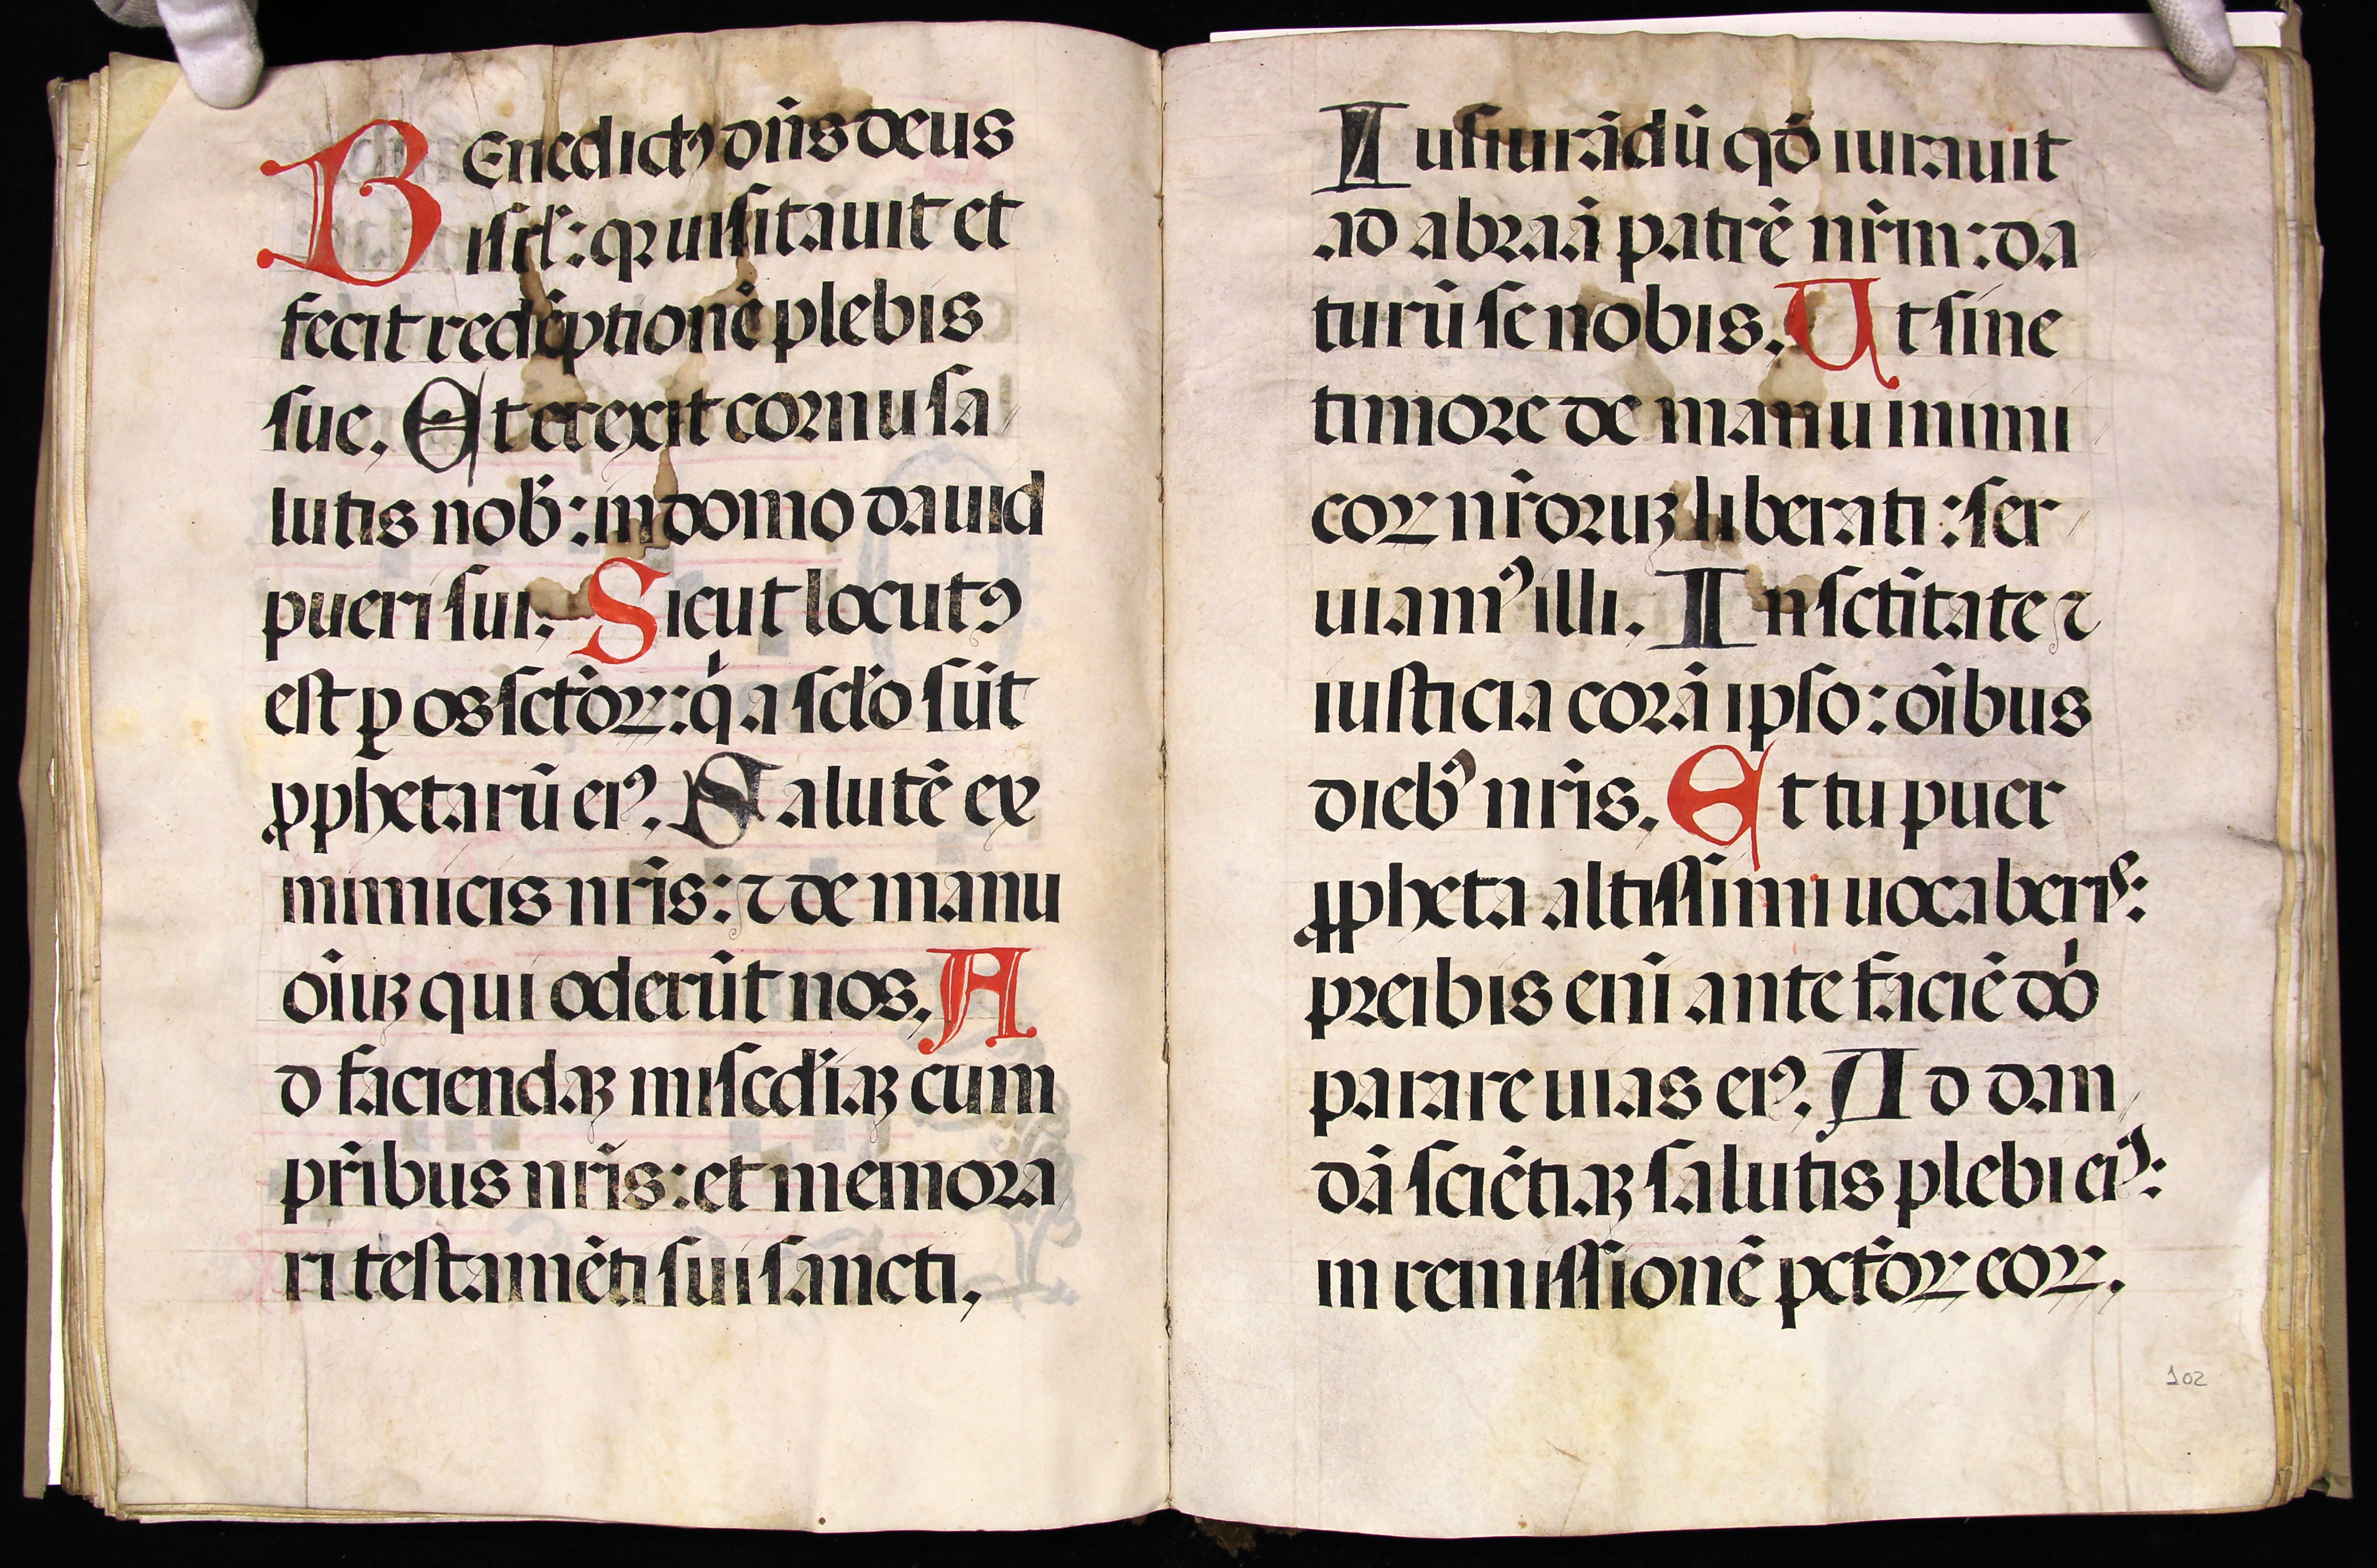 BEnedictꝰ dn̄s deus
isrl̄: qꝛ uisitauit et
fecit redēptionē plebis
sue. Et erexit cornu sa
lutis nob̄: in domo dauid
pueri sui. Sicut locutꝰ
est ꝑ os sctōꝝ: q̇ a sclo sūt
ꝓphetarū eiꝰ. Salutē ex
inimicis nr̄is: ⁊ de manu
oīuꝫ qui oderūt nos. A
d faciendaꝫ misc̄diaꝫ cum
pr̄ibus nr̄is: et memora
ri testamēti sui sancti,
Iusiurādū qd̄ iurauit
ad abraā patrē nr̄m: da
turū se nobis. Ut sine
timore de manu inimi
coꝝ nr̄oruꝫ liberati: ser
uiamꝰ illi. In sctītate ⁊
iusticia corā ipso: oībus
diebꝰ nr̄is. Et tu puer
ꝓpheta altissimi uocaberis:
preibis enī ante faciē dō
parare uias eiꝰ. Ad dan
dā sciētiaꝫ salutis plebi eiꝰ:
in remissionē pctōꝝ eoꝝ.
102